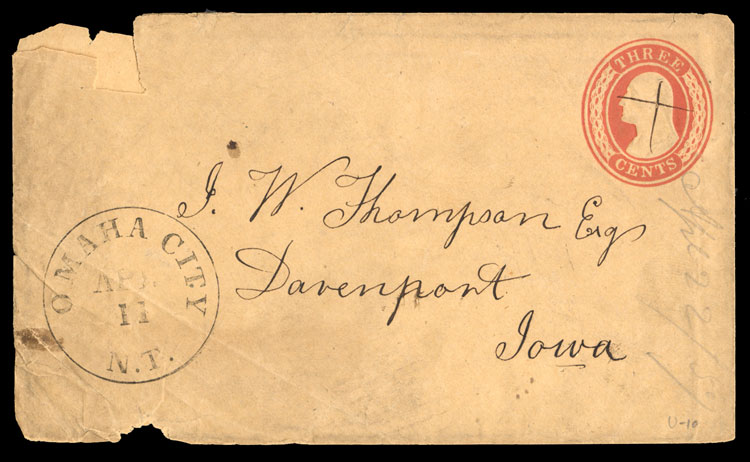 THREE
CENTS
J. W. Thompson Esq
Davenport
Iowa
OMAHA CITY
APR.
11
N.T.
U-10